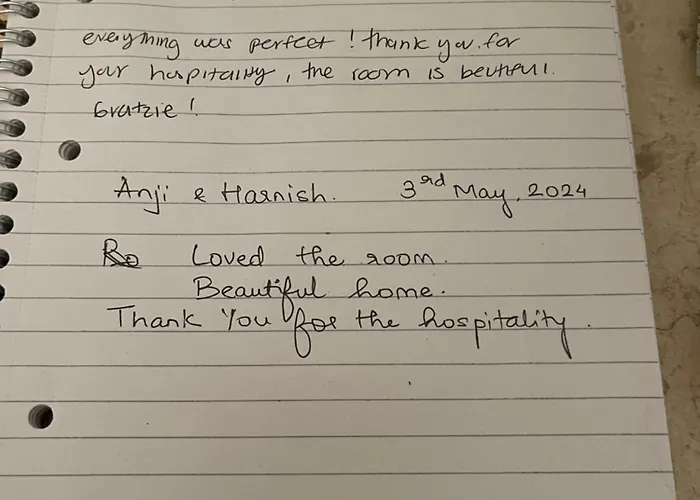 everything was perfect ! thank you for
your hospitality, the room is beutiful.
Gratzie !
Anji & Harnish. 3rd May, 2024
Loved the room.
Beautiful home.
Thank You for the hospitality.